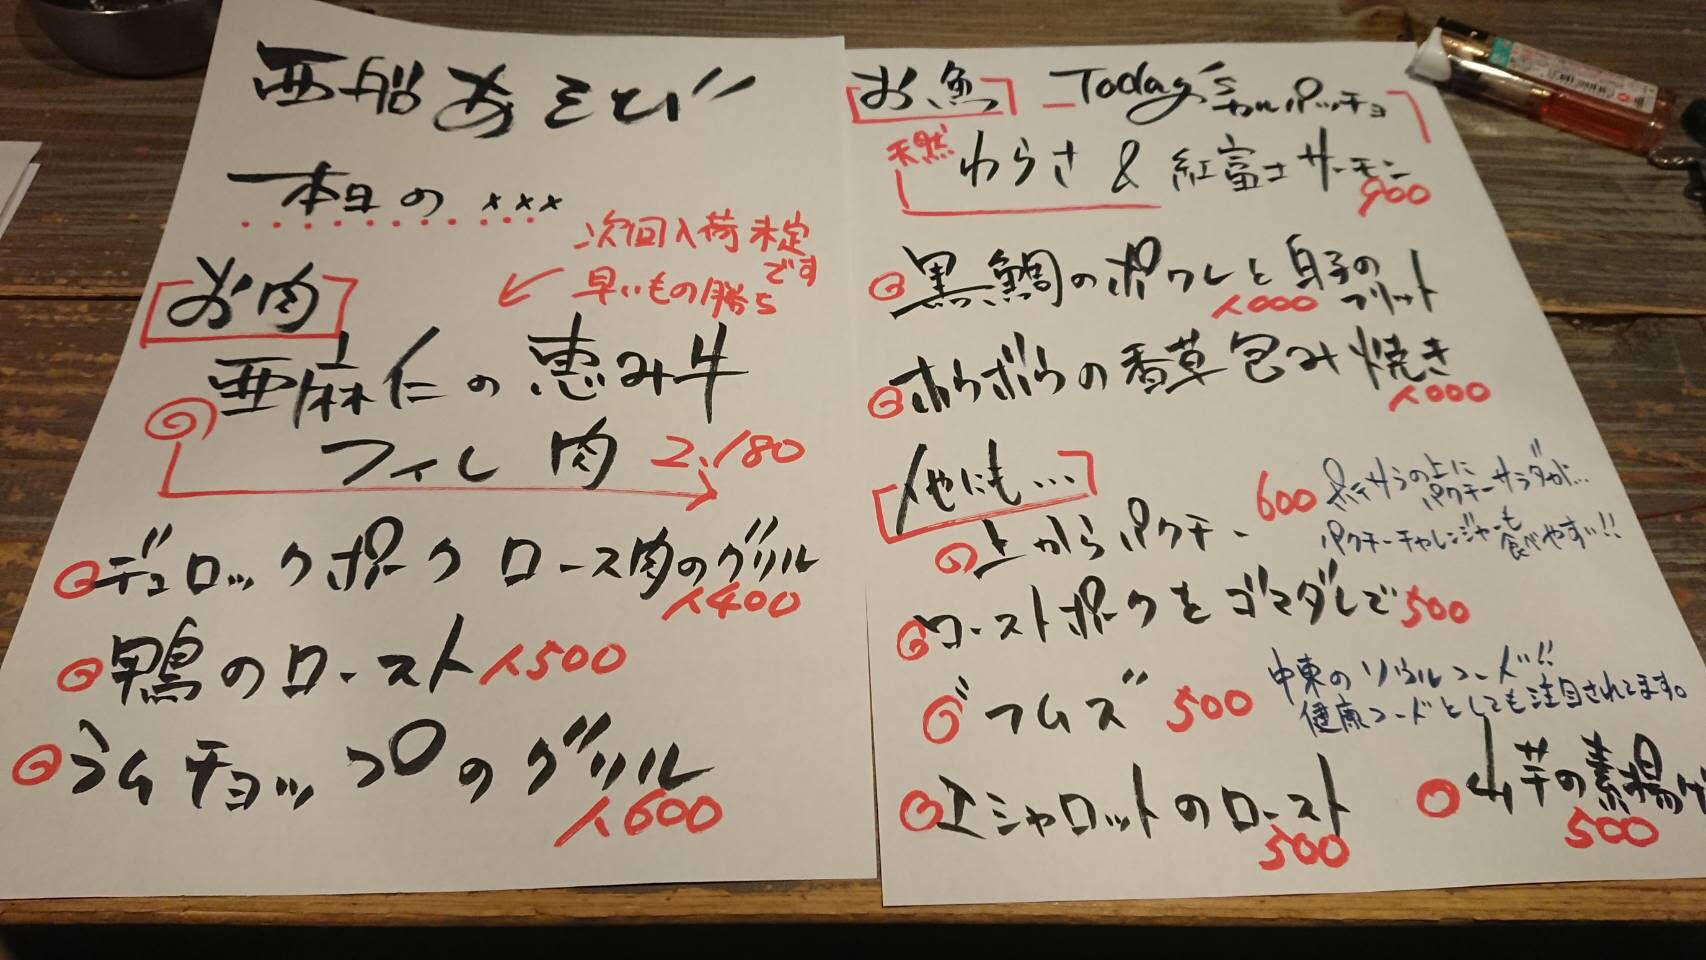 西船あそび
本日の×××
次回入荷未定
です
早いもの勝ち
お肉
亜麻仁の恵み牛
フィレ肉 2.180
デュロックポーク ロース肉のグリル
1.400
鴨のロースト 1.500
ラムチョップのグリル
1.600
お魚 Today's カルパッチョ
天然 わらさ & 紅富士サーモン
900
黒鯛のポワレと白子の
フリット
1.000
ホウボウの香草包み焼き
1.000
他にも…
上からパクチー 600
ポテサラの上に
パクチーサラダが…
パクチーチャレンジャーも
食べやすい!!
ローストポークをゴマダレで 500
フムス 500
中東のソウルフード!!
健康フードとしても注目されてます。
エシャロットのロースト
500
山芋の素揚げ
500